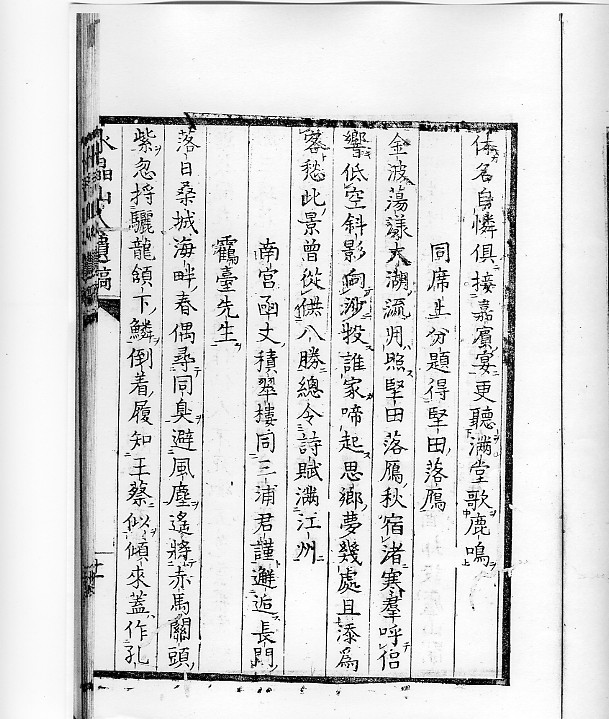 休名自憐俱接嘉賓宴更聽滿堂歌鹿鳴
同席上分題得堅田落鴈
金波蕩漾大湖流月照堅田落鴈秋宿渚寒羣呼侶
響低空斜影向沙投誰家啼起思鄉夢幾處且添為
客愁此景曾從供八勝總令詩賦滿江州
南宮函丈積翠樓同三浦君謹邂逅長門
鶴臺先生
落日桑城海畔春偶尋同臭避風塵遙將赤馬關頭
紫忽捋驪龍頷下鱗倒著履知王蔡似傾來蓋作孔
水晶山人遺稿